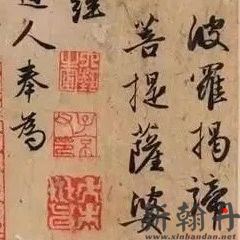 波羅揭諦
菩提薩婆
經
道人奉為
www.xinbandan.net